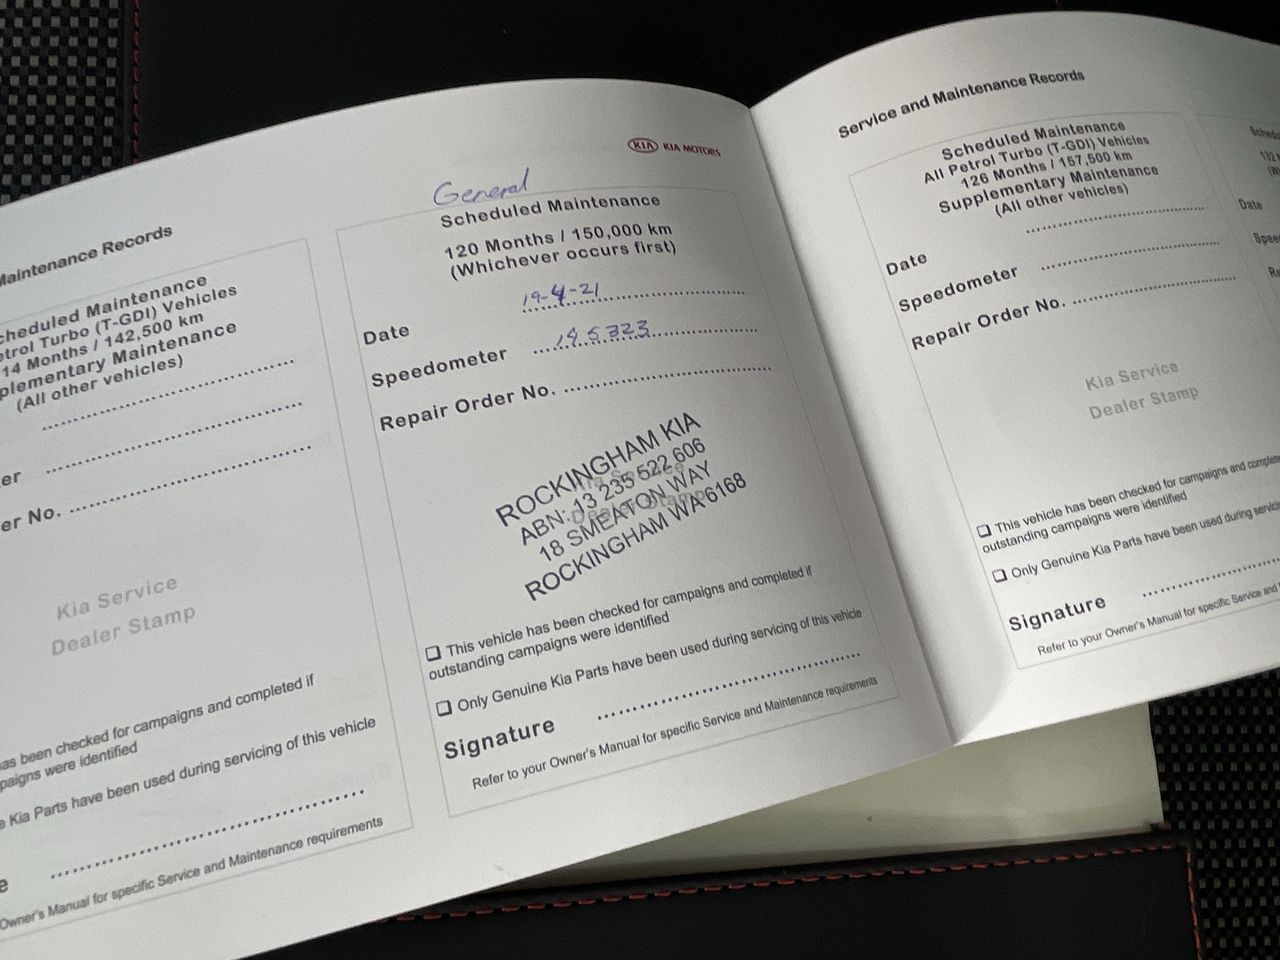 Maintenance Records
Scheduled Maintenance
Petrol Turbo (T-GDI) Vehicles
114 Months / 142,500 km
Supplementary Maintenance
(All other vehicles)
er
er No.
Kia Service
Dealer Stamp
has been checked for campaigns and completed if
campaigns were identified
Kia Parts have been used during servicing of this vehicle
e
Owner's Manual for specific Service and Maintenance requirements
KIA KIA MOTORS
General
Scheduled Maintenance
120 Months / 150,000 km
(Whichever occurs first)
Date 19-4-21
Speedometer 195323
Repair Order No.
ROCKINGHAM KIA
ABN: 13 235 522 606
18 SMEATON WAY
ROCKINGHAM WA 6168
Kia Service
Dealer Stamp
❑ This vehicle has been checked for campaigns and completed if
outstanding campaigns were identified
❑ Only Genuine Kia Parts have been used during servicing of this vehicle
Signature
Refer to your Owner's Manual for specific Service and Maintenance requirements
Service and Maintenance Records
Scheduled Maintenance
All Petrol Turbo (T-GDI) Vehicles
126 Months / 157,500 km
Supplementary Maintenance
(All other vehicles)
Date
Speedometer
Repair Order No.
Kia Service
Dealer Stamp
❑ This vehicle has been checked for campaigns and complete
outstanding campaigns were identified
❑ Only Genuine Kia Parts have been used during servici
Signature
Refer to your Owner's Manual for specific Service and
Sched
132
Date
Spee
Re